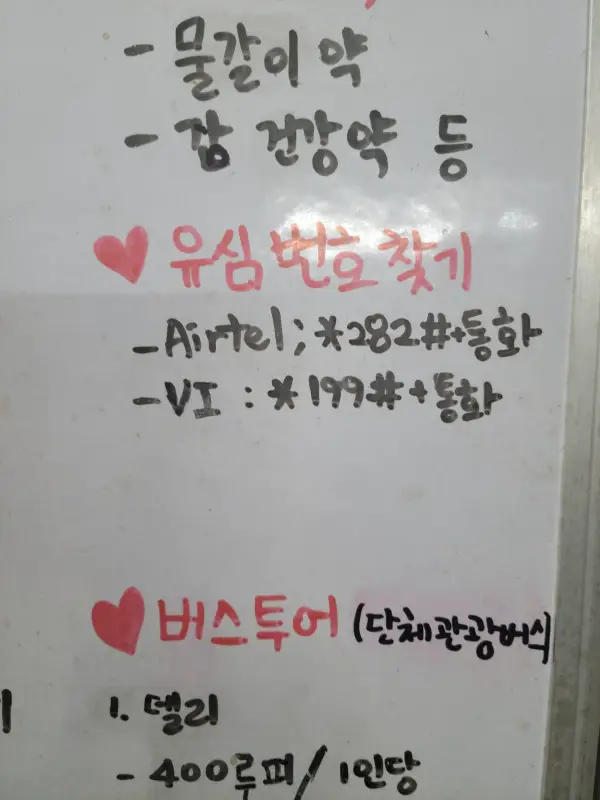 - 물갈이 약
- 잠 건강약 등
♥ 유심 번호 찾기
- Airtel; *282#+통화
- VI : *199#+통화
♥ 버스투어 (단체관광버식
1. 델리
- 400루피/1인당